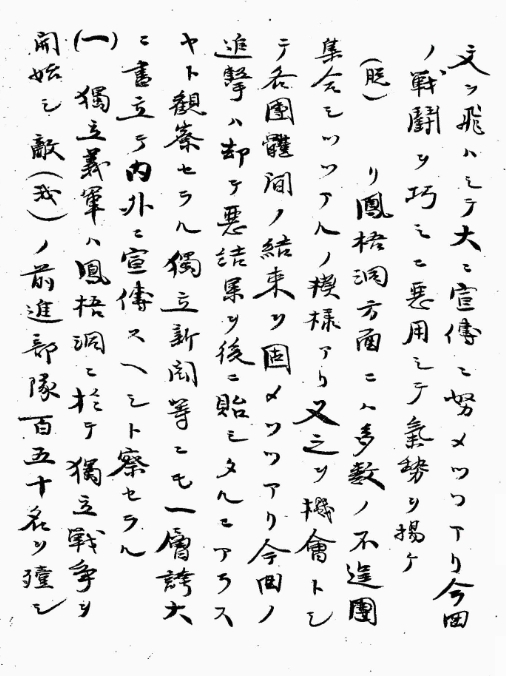 文ヲ飛ハシテ大ニ宣傳ニ努メツツアリ今回
ノ戰鬪ヲ巧ミニ悪用シテ氣勢ヲ揚ケ
(脱)リ鳳梧洞方面ニハ多數ノ不逞團
集合シツツアルノ模様アリ又之ヲ機會トシ
テ各團體間ノ結束ヲ固メツツアリ今回ノ
進撃ハ却テ悪結果ヲ後ニ貽シタルニアラス
ヤト観察セラル獨立新聞等ニモ一層誇大
ニ書立テ内外ニ宣傳スヘシト察セラル
(一)獨立義軍ハ鳳梧洞ニ於テ獨立戰争ヲ
開始シ敵(我)ノ前進部隊百五十名ヲ殪シ